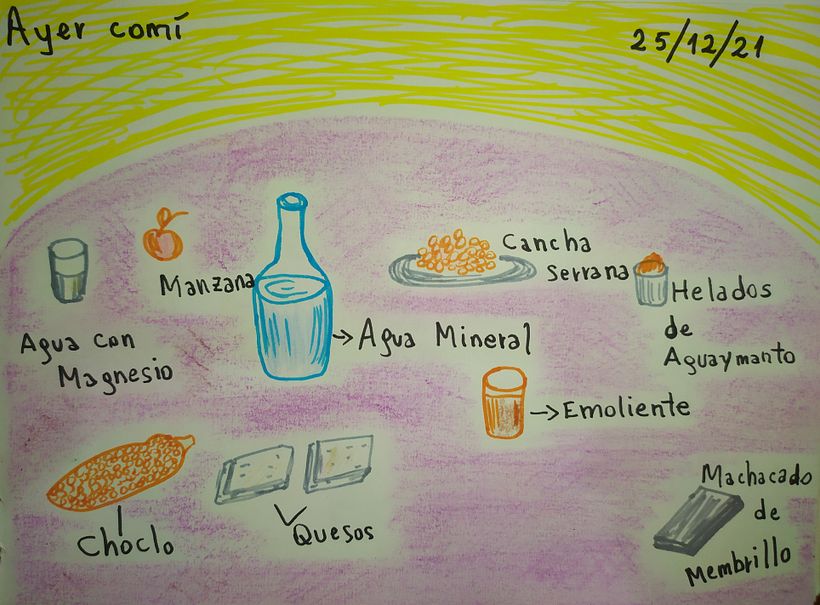 Ayer comí
25/12/21
Manzana
Agua con
Magnesio
Agua Mineral
Cancha
Serrana
Helados
de
Aguaymanto
Emoliente
Choclo
Quesos
Machacado
de
Membrillo